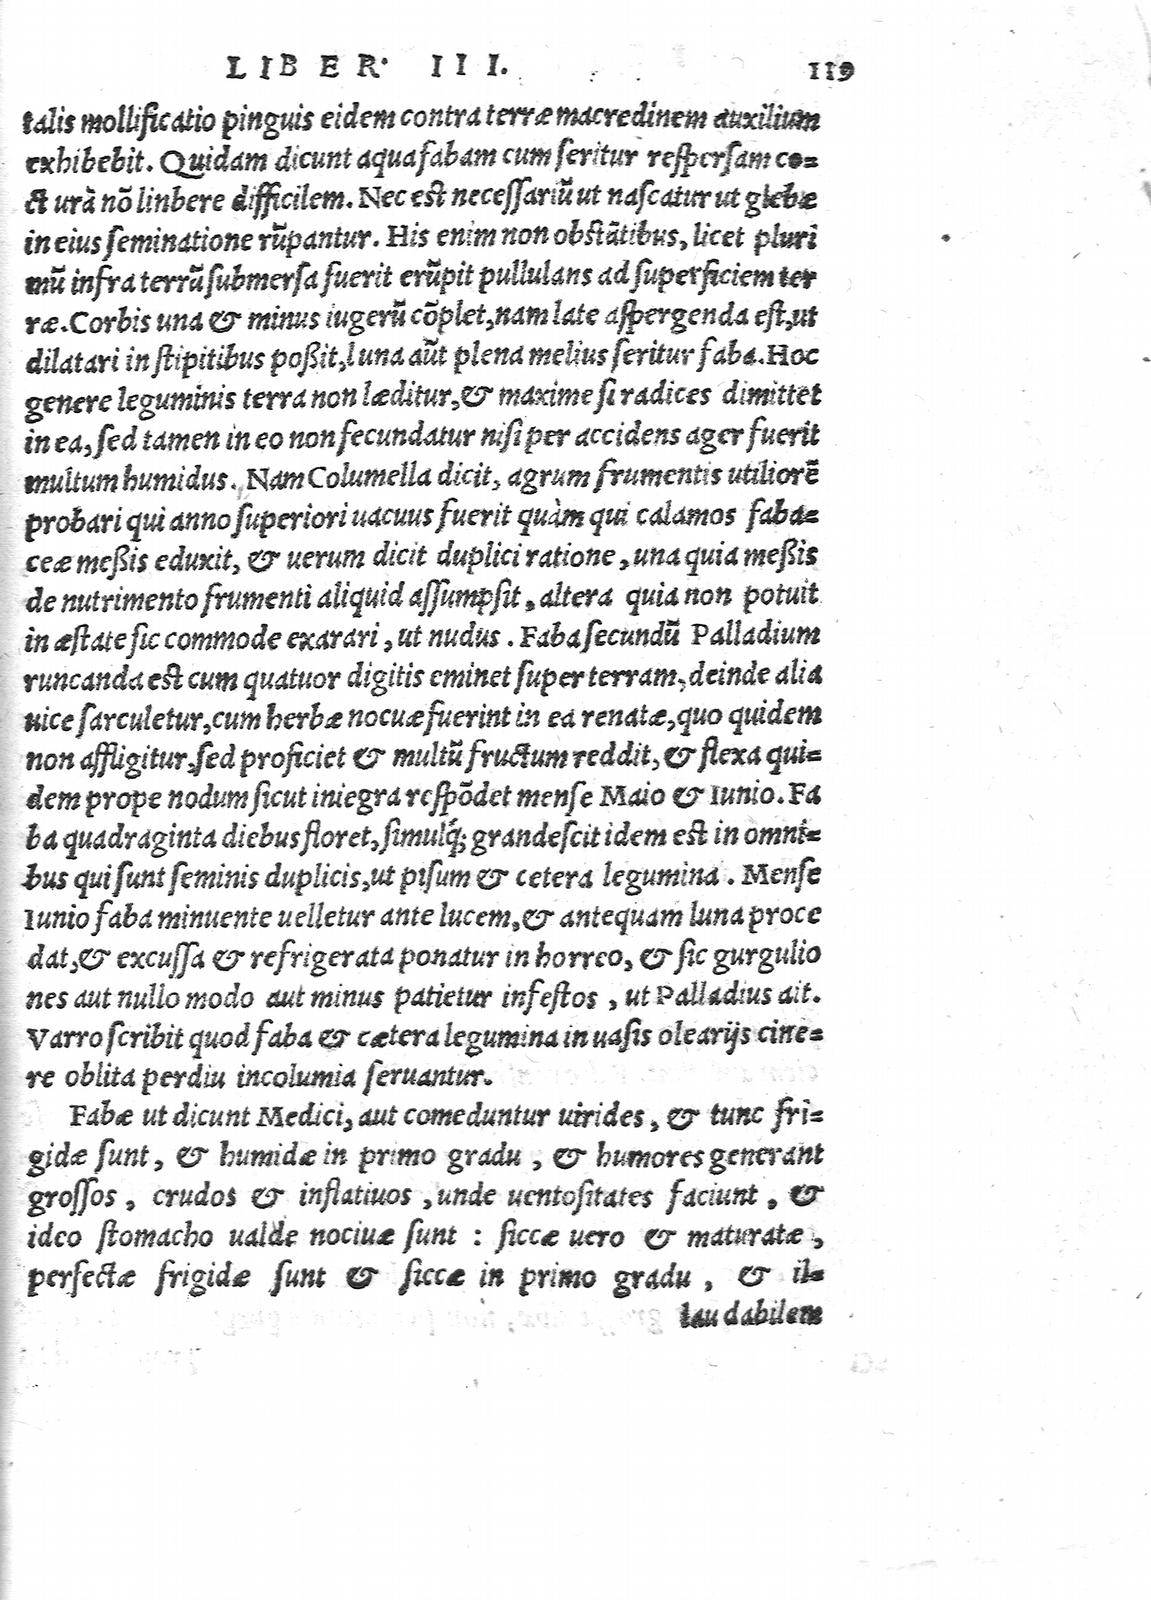 LIBER III. 119
talis mollificatio pinguis eidem contra terræ macredinem auxilium
exhibebit. Quidam dicunt aqua fabam cum ſeritur reſperſam co=
ct urā nō linbere difficilem. Nec est neceſſariū ut naſcatur ut glebæ
in eius ſeminatione rūpantur. His enim non obstātibus, licet pluri
mū infra terrū ſubmerſa fuerit erūpit pullulans ad ſuperficiem ter
ræ. Corbis una & minus iugerū cōplet, nam late aſpergenda est, ut
dilatari in ſtipitibus poßit, luna aūt plena melius ſeritur faba. Hoc
genere leguminis terra non læditur, & maxime ſi radices dimittet
in ea, ſed tamen in eo non fecundatur niſi per accidens ager fuerit
multum humidus. Nam Columella dicit, agrum frumentis utiliorē
probari qui anno ſuperiori uacuus fuerit quàm qui calamos faba=
ceæ meßis eduxit, & uerum dicit duplici ratione, una quia meßis
de nutrimento frumenti aliquid aſſumpſit, altera quia non potuit
in æſtate ſic commode exarari, ut nudus. Faba ſecundū Palladium
runcanda est cum quatuor digitis eminet ſuper terram, deinde alia
uice ſarculetur, cum herbæ nocuæ fuerint in ea renatæ, quo quidem
non affligitur, ſed proficiet & multū fructum reddit, & flexa qui=
dem prope nodum ſicut iniegra reſpōdet menſe Maio & Iunio. Fa
ba quadraginta diebus floret, ſimulq́; grandeſcit idem est in omni=
bus qui ſunt ſeminis duplicis, ut piſum & cetera legumina. Menſe
Iunio faba minuente uelletur ante lucem, & antequam luna proce
dat, & excuſſa & refrigerata ponatur in horreo, & ſic gurgulio
nes aut nullo modo aut minus patietur infeſtos, ut Palladius ait.
Varro ſcribit quod faba & cætera legumina in uaſis olearijs cine=
re oblita perdiu incolumia ſeruantur.
Fabæ ut dicunt Medici, aut comeduntur uirides, & tunc fri=
gidæ ſunt, & humidæ in primo gradu, & humores generant
groſſos, crudos & inflatiuos, unde uentoſitates faciunt, &
ideo ſtomacho ualde nociuæ ſunt : ſiccæ uero & maturatæ,
perfectæ frigidæ ſunt & ſiccæ in primo gradu, & il=
lau dabilem